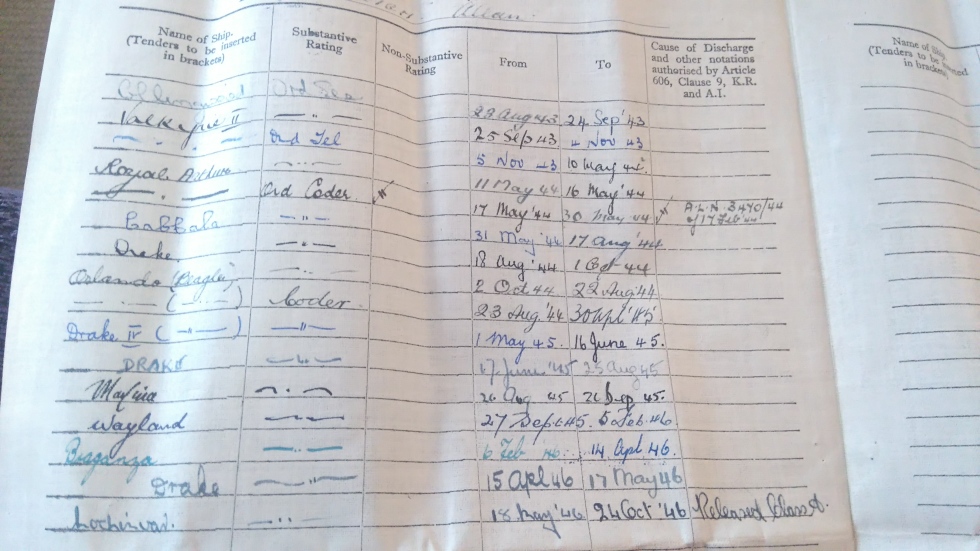 Allan.
Name of Ship. (Tenders to be inserted in brackets) Substantive Rating Non-Substantive Rating From To Cause of Discharge and other notations authorised by Article 606, Clause 9, K.R. and A.I.
Ord Sea 23 Aug 43 24 Sep '43
II — " — 25 Sep 43 4 Nov 43
— " — Ord Tel 5 Nov 43 10 May 44.
Royal Arthur — " — 11 May 44 16 May '44
— " — Ord Coder 17 May '44 30 May 44 A.L.N. 3470/44 of 17 Feb '44
Cabbala — " — 31 May '44 17 Aug '44
Drake — " — 18 Aug '44 1 Oct 44
Orlando — " — 2 Oct 44 22 Aug '44
— " — ( — " — ) Coder 23 Aug '44 30 Apl '45
Drake IV ( — " — ) — " — 1 May 45. 16 June 45.
DRAKE — " — 17 June '45 25 Aug 45
— " — 26 Aug 45 26 Sep 45.
Wayland — " — 27 Sept 45. 5 Feb 46.
Braganza — " — 6 Feb 46 14 Apl 46.
Drake — " — 15 Apl 46 17 May 46
Lochinvar. — " — 18 May '46 24 Oct '46 Released Class A.
Name of Ship.
(Tenders to be inserted
in brackets)